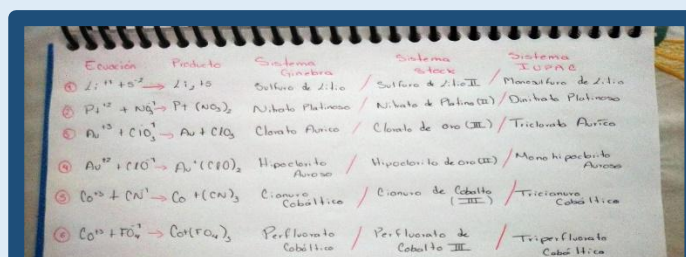 Ecuación Producto Sistema Ginebra Sistema Stock Sistema IUPAC
① Li⁺¹ + S⁻² → Li₂ + S Sulfuro de Litio / Sulfuro de Litio II / Monosulfuro de Litio
② Pt⁺² + NO₃⁻¹ → Pt (NO₃)₂ Nitrato Platinoso / Nitrato de Platino (II) / Dinitrato Platinoso
③ Au⁺³ + ClO₃⁻¹ → Au + ClO₃ Clorato Aurico / Clorato de oro (III) / Triclorato Aurico
④ Au⁺² + ClO⁻¹ → Au⁺(ClO)₂ Hipoclorito Auroso / Hipoclorito de oro (II) / Mono hipoclorito Auroso
⑤ Co⁺³ + CN⁻¹ → Co + (CN)₃ Cianuro Cobáltico / Cianuro de Cobalto (III) / Tricianuro Cobáltico
⑥ Co⁺³ + FO₄⁻¹ → Co+(FO₄)₃ Perfluorato Cobáltico / Perfluorato de Cobalto III / Triperfluorato Cobáltico